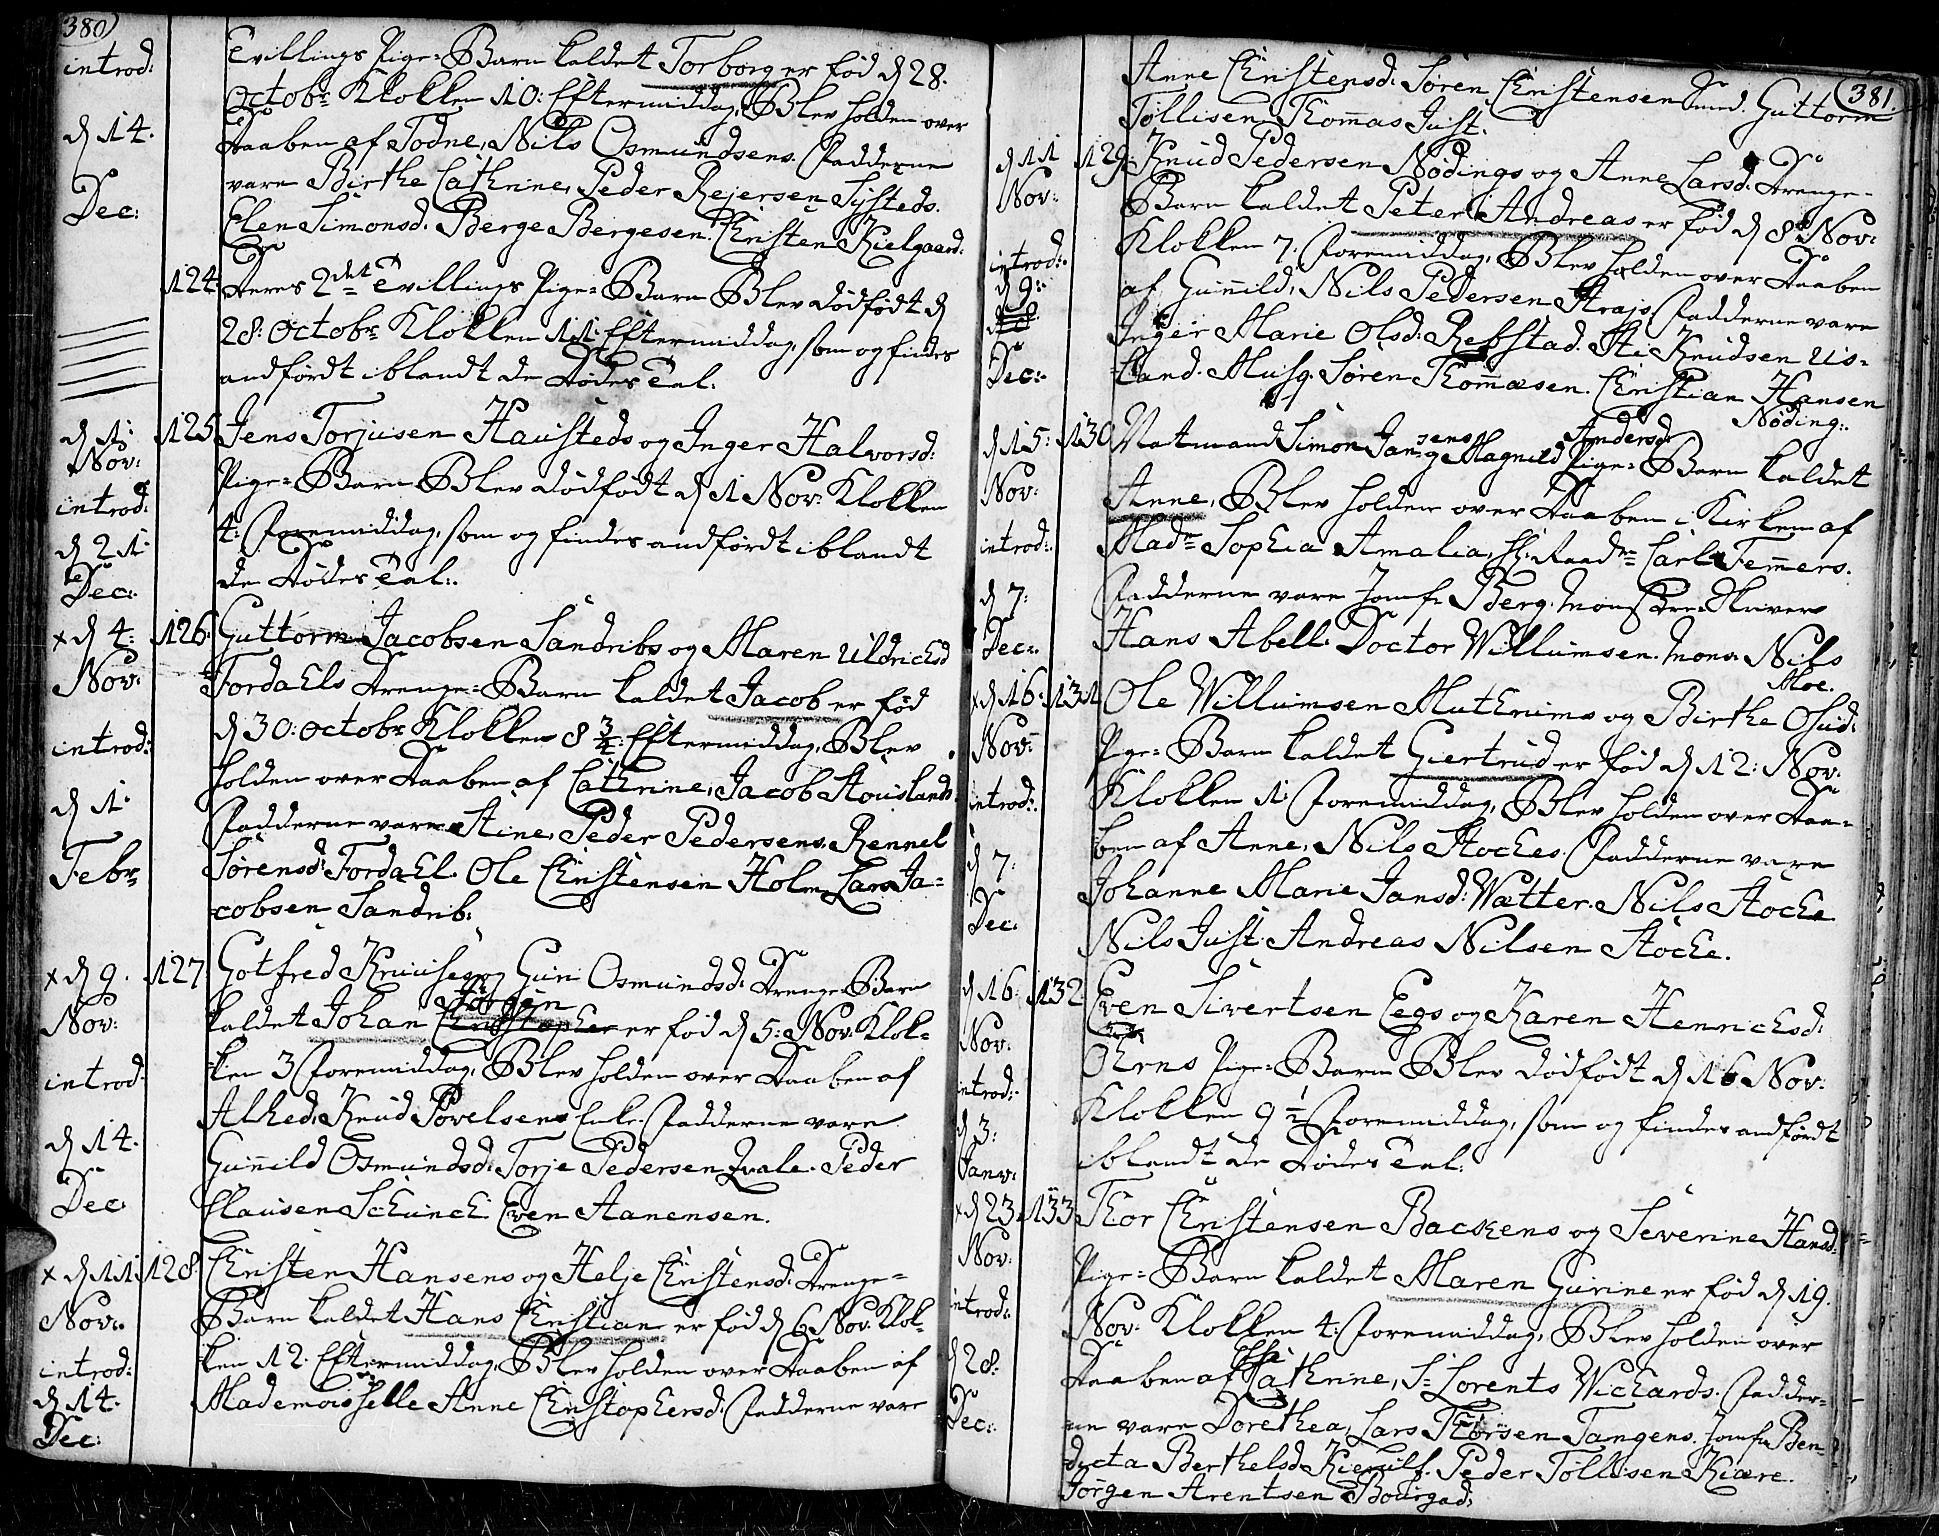 380
introd:
d 14.
Dec:
Tvillings Pige=Barn kaldet Torborg er fød d 28.
Octobr Klokken 10: Eftermiddag, Blev holden over
Daaben af Todne, Nils Osmundsens. Fadderne
vare Birthe Cathrine, Peder Rejersen Systeds.
Elen Simonsd. Berge Bergesen. Christen Kielgaard.
124. Deres 2det Tvillings Pige=Barn Blev dødfødt d
28: Octobr Klokken 11: Eftermiddag, som og findes
andførdt iblandt de Dødes Tal.
d 1. Nov:
introd:
d 21 Dec:
125 Jens Torjusen Hausteds og Inger Halvorsd:
Pige=Barn Blev dødfødt d 1 Nov: Klokken
4: Foremiddag, som og findes andførdt iblandt
de Dødes Tal:.
x d 4: Nov:
introd:
d 1. Febr
126. Guttorm Jacobsen Sandribs og Maren Uldrichsd
Fordahls Drenge=Barn kaldet Jacob er fød
d 30: Octobr Klokken 8 3/4: Eftermiddag, Blev
holden over Daaben af Cathrine, Jacob Stouslands.
Fadderne vare Stine, Peder Pedersens. Rennel
Sørensd: Fordahl. Ole Christensen Holm, Lars Ja=
cobsen Sandrib:
x d 9. Nov:
introd:
d 14. Dec
127 Gotfred Knuuse og Guni Osmundsd: Drenge Barn
Jørgen
kaldet Johan Christopher er fød d 5: Nov: Klok=
ken 3 Foremiddag, Blev holden over Daaben af
Alhed, Knud Povelsens Enke. Fadderne vare
Gunnild Osmundsd: Torje Pedersen Qvale. Peder
Clausen Schunch. Even Aanensen.
x d 11 Nov:
introd:
d 14. Dec:
128 Christen Hansens og Helje Christensd: Drenge=
Barn kaldet Hans Christian er fød d 6 Nov: Klok=
ken 12: Eftermiddag, Blev holden over Daaben af
Mademoisselle Anne Christophersd: Fadderne vare
381.
Anne Christensd: Søren Christensen Guttorm
Tollisen Thommas Just.
d 11 Nov:
introd:
d 9:
Dec:
129: Knud Pedersen Nødings og Anne Larsd: Drenge=
Barn kaldet Peter Andreas er fød d 8 Nov:
Klokken 7: Foremiddag, Blev holden over Daaben
af Gunnild, Nils Pedersen Strajs. Fadderne vare
Inger Marie Olsd: Rebstad. Sti Knudsen Uis=
land. Musq. Søren Thommæsen. Christian Hansen
Nøding:
d 15: Nov:
introd:
d 7: Dec:
130 Natmand Simon Jansens og Magnild Andersd: Pige=Barn kaldet
Anne, Blev holden over Daaben i Kirken af
Madr Sophia Amalia, Carl Temmers.
Fadderne vare Jomfr Berg. Mons
Hans Abell. Doctor Willumsen. Mons: Nils
Moe.
x d 16: Nov:
introd:
d 7: Dec:
131 Ole Willumsen Muthrims og Birthe Osuld:
Pige=Barn kaldet Giertrud er fød d 12: Nov:
Klokken 1: Foremiddag, Blev holden over Daa=
ben af Anne, Nils Stoches. Fadderne vare
Johanne Marie Jansd: Watter. Nils Stoche
Nils Just. Andreas Nilsen Stoche.
d 16: Nov:
introd:
d 3: Janv:
132 Even Sivertsen Eegs og Karen Henrichsd:
Ohrns Pige=Barn Blev dødfødt d 16 Nov:
Klokken 9 1/2 Foremiddag, som og findes andførdt
iblandt de Dødes Tal:
x d 23 Nov:
introd:
d 28: Dec:
133 Thor Christensen Backens og Severine Hansd:
Pige=Barn kaldet Maren Gurine er fød d 19.
Nov: Klokken 4: Foremiddag, Blev holden over
Daaben af Cathrine, Sr Lorents Wichards. Fadder=
ne vare Dorethea, Lars Thorsen Tangens. Jomfr Ben=
dicta Berthelsd Kierulf. Peder Tollisen Kiære.
Jørgen Arentsen Bourgad: